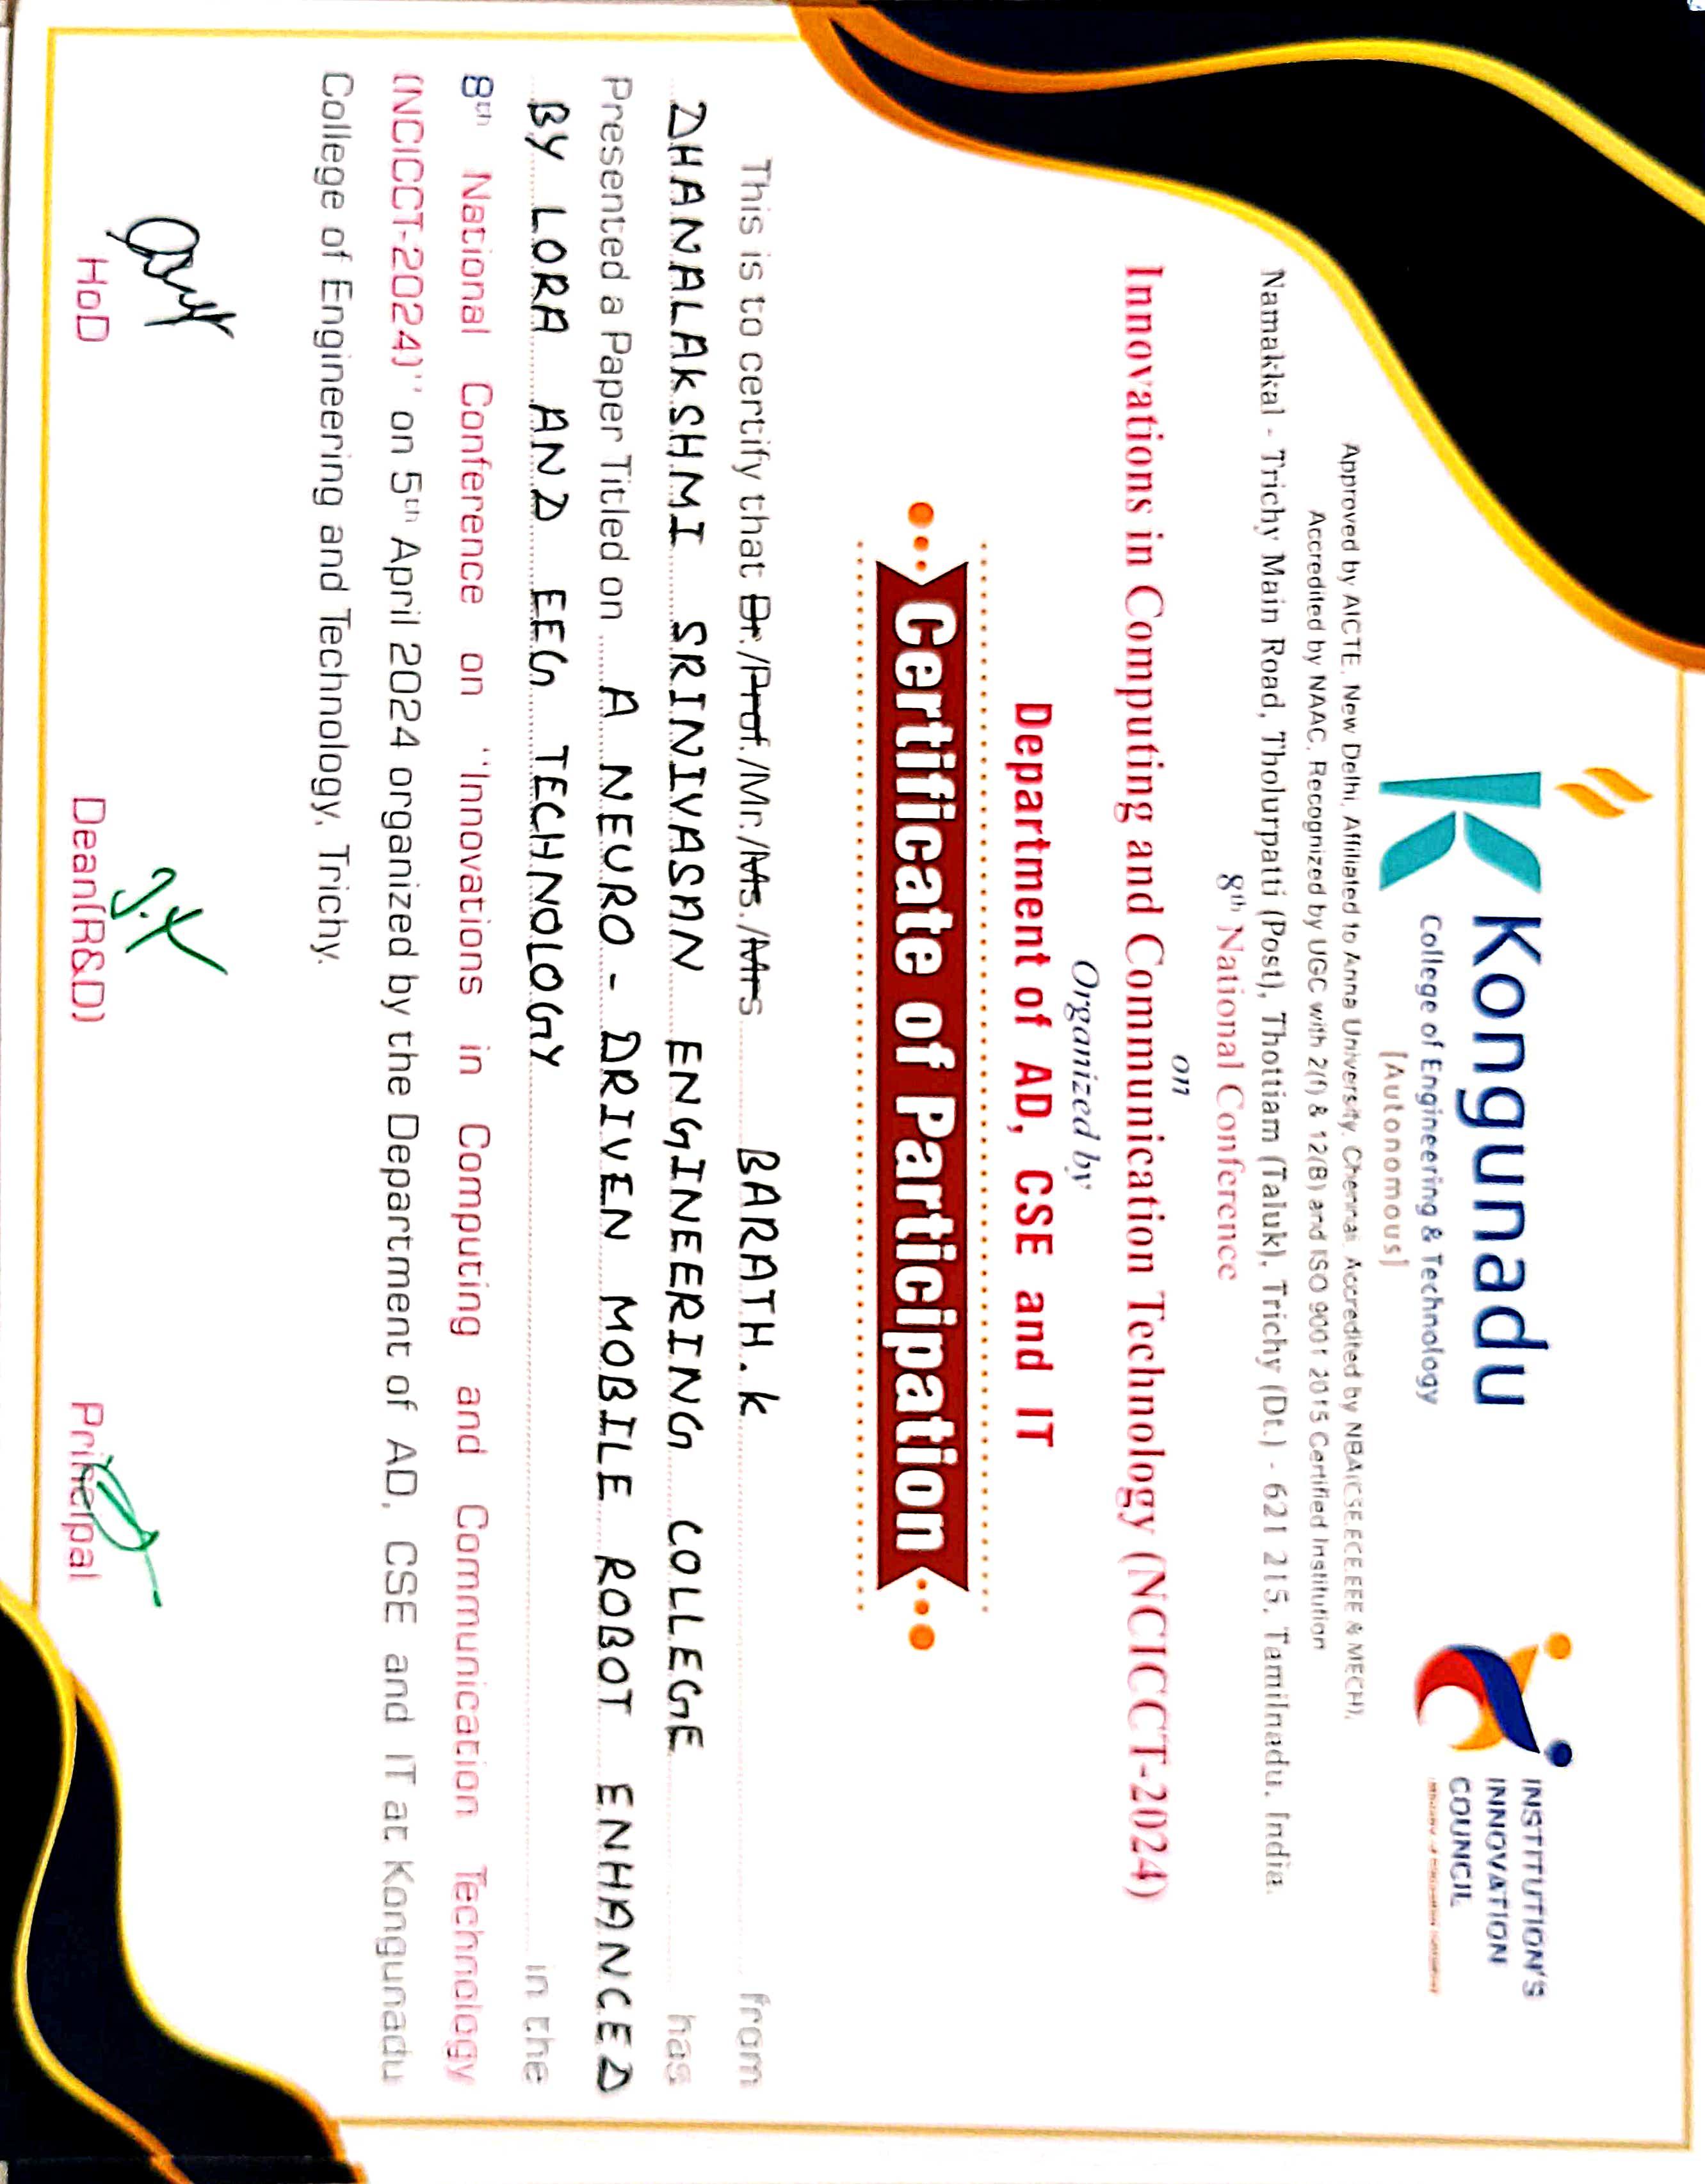 Kongunadu
College of Engineering & Technology
[Autonomous]
INSTITUTION'S
INNOVATION
COUNCIL
Approved by AICTE, New Delhi, Affiliated to Anna University, Chennai, Accredited by NBA(CSE,ECE,EEE & MECH),
Accredited by NAAC, Recognized by UGC with 2(f) & 12(B) and ISO 9001 2015 Certified Institution
Namakkal - Trichy Main Road, Tholurpatti (Post), Thottiam (Taluk), Trichy (Dt.) - 621 215, Tamilnadu, India.
8th National Conference
on
Innovations in Computing and Communication Technology (NCICCT-2024)
Organized by
Department of AD, CSE and IT
Certificate of Participation
This is to certify that Dr./Prof./Mr./Ms./Mrs BARATH.K from
DHANALAKSHMI SRINIVASAN ENGINEERING COLLEGE has
Presented a Paper Titled on A NEURO - DRIVEN MOBILE ROBOT ENHANCED
BY LORA AND EEG TECHNOLOGY in the
8th National Conference on "Innovations in Computing and Communication Technology
(NCICCT-2024)" on 5th April 2024 organized by the Department of AD, CSE and IT at Kongunadu
College of Engineering and Technology, Trichy.
J.K
HoD
Dean(R&D)
Principal